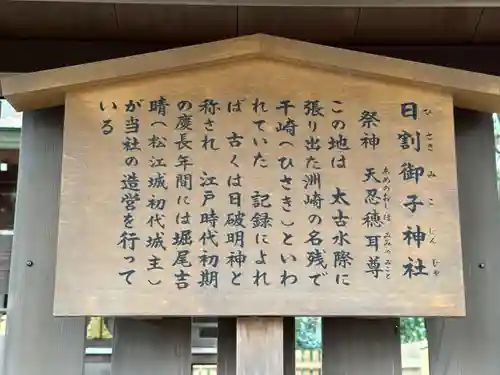 日割御子神社
ひさきみこじんじや
祭神 天忍穂耳尊
あめのおしほみみのみこと
この地は 太古水際に
張り出た洲崎の名残で
干崎（ひさき）といわ
れていた 記録によれ
ば 古くは日破明神と
称され 江戸時代初期
の慶長年間には堀尾吉
晴（松江城初代城主）
が当社の造営を行って
いる